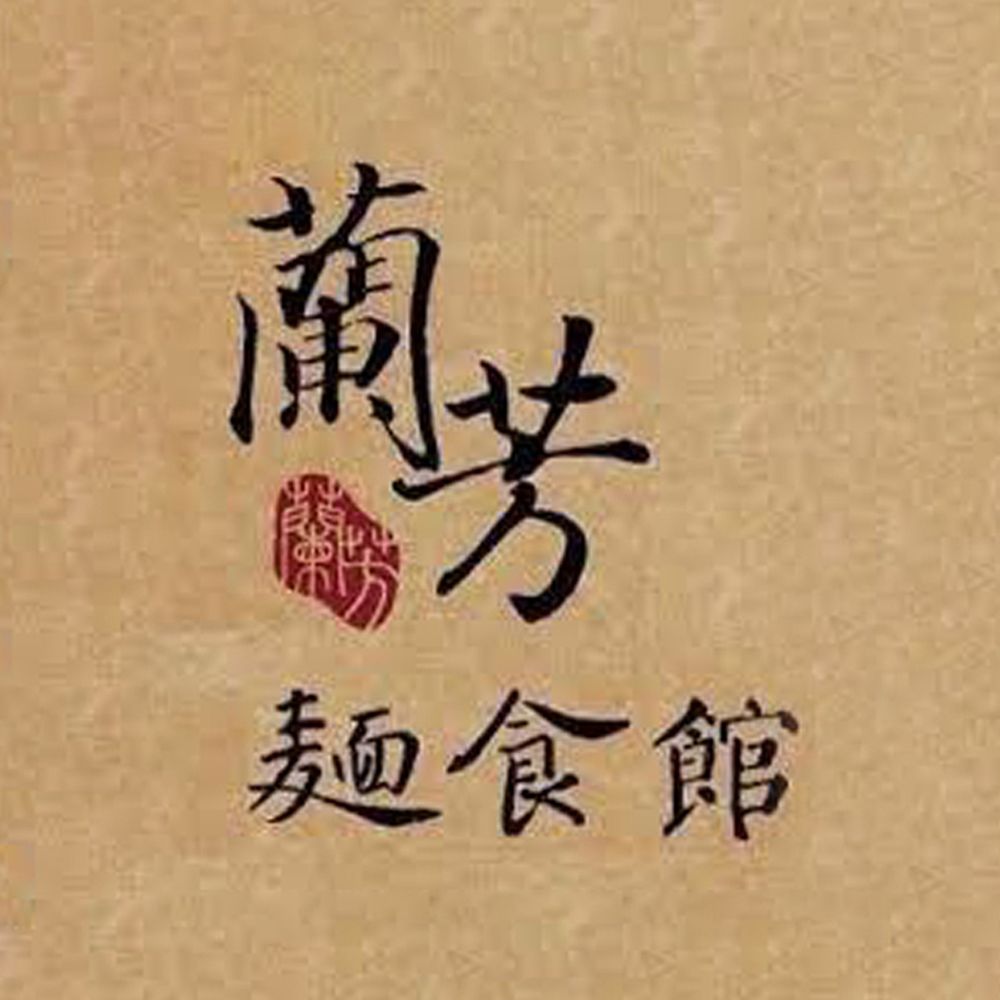 蘭芳
蘭芳
麵食館